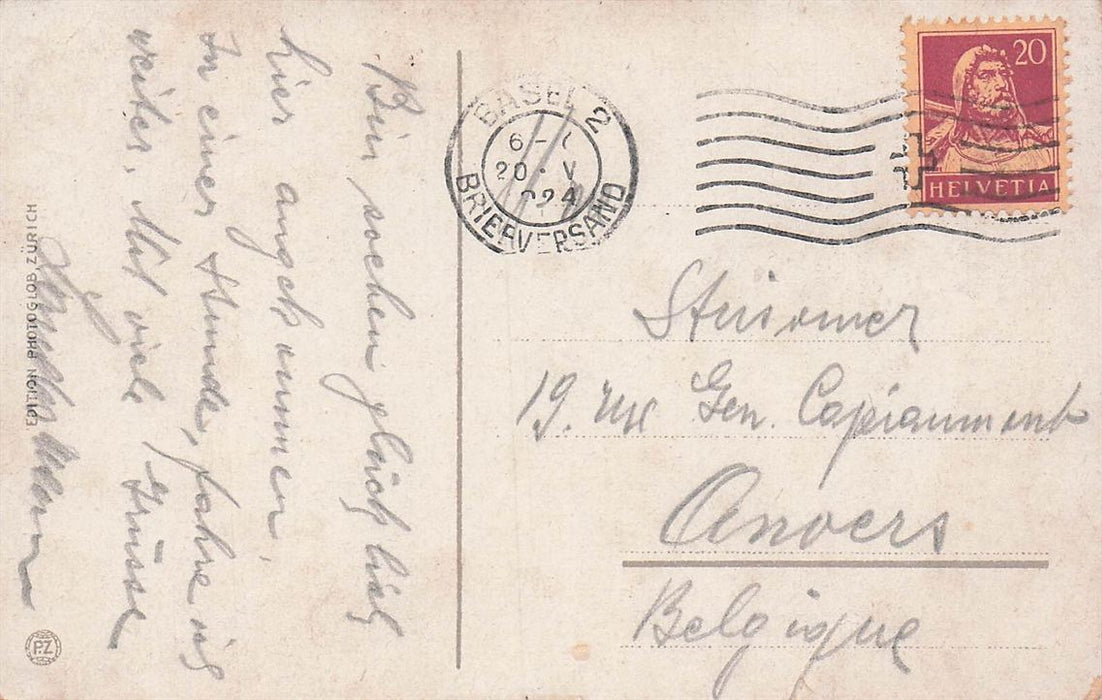 Bin soeben glücklich
hier angekommen.
In einer Stunde, fahre ich
weiter. Mit viele Grüsse
EDITION PHOTOGLOB, ZÜRICH
PZ
BASEL 2
20. V
BRIEFVERSAND
20
HELVETIA
19. rue Gen. Capiaumont
Anvers
Belgique